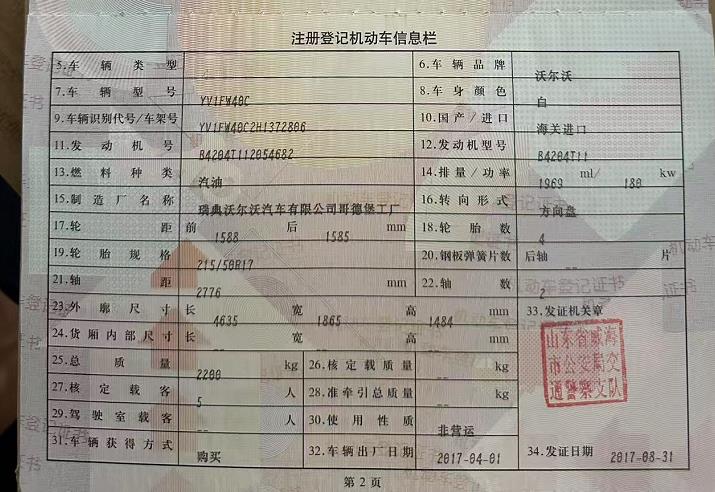 注册登记机动车信息栏
5.车辆类型 6.车辆品牌 沃尔沃
7.车辆型号 YV1FW40C 8.车身颜色 白
9.车辆识别代号/车架号 YV1FW40C2H1372806 10.国产/进口 海关进口
11.发动机号 B4204T112054682 12.发动机型号 B4204T11
13.燃料种类 汽油 14.排量/功率 1969 ml/ 180 kw
15.制造厂名称 瑞典沃尔沃汽车有限公司哥德堡工厂 16.转向形式 方向盘
17.轮距 前 1588 后 1585 mm 18.轮胎数 4
19.轮胎规格 215/50R17 20.钢板弹簧片数 后轴 -- 片
21.轴距 2776 mm 22.轴数 2
23.外廓尺寸 长 4635 宽 1865 高 1484 mm 33.发证机关章
24.货厢内部尺寸 长 -- 宽 -- 高 -- mm
山东省威海
市公安局交
通警察支队
25.总质量 2200 kg 26.核定载质量 -- kg
27.核定载客 5 人 28.准牵引总质量 -- kg
29.驾驶室载客 -- 人 30.使用性质 非营运
31.车辆获得方式 购买 32.车辆出厂日期 2017-04-01 34.发证日期 2017-08-31
第2页